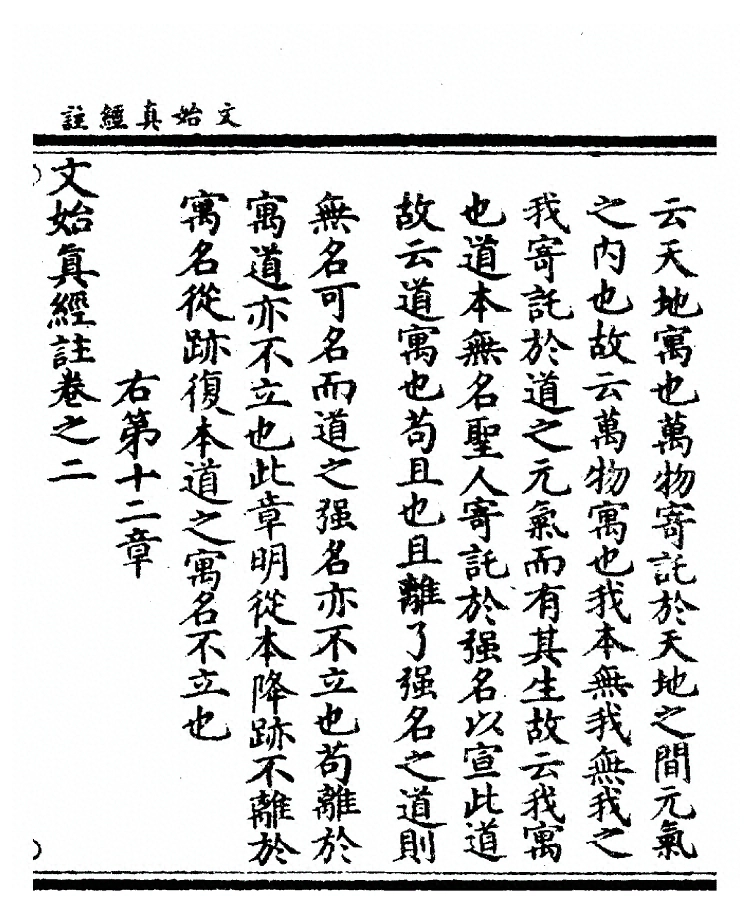 文始真經註
云天地寓也萬物寄託於天地之間元氣
之内也故云萬物寓也我本無我無我之
我寄託於道之元氣而有其生故云我寓
也道本無名聖人寄託於强名以宣此道
故云道寓也苟且也且離了强名之道則
無名可名而道之强名亦不立也苟離於
寓道亦不立也此章明從本降跡不離於
寓名從跡復本道之寓名不立也
右第十二章
文始真經註卷之二